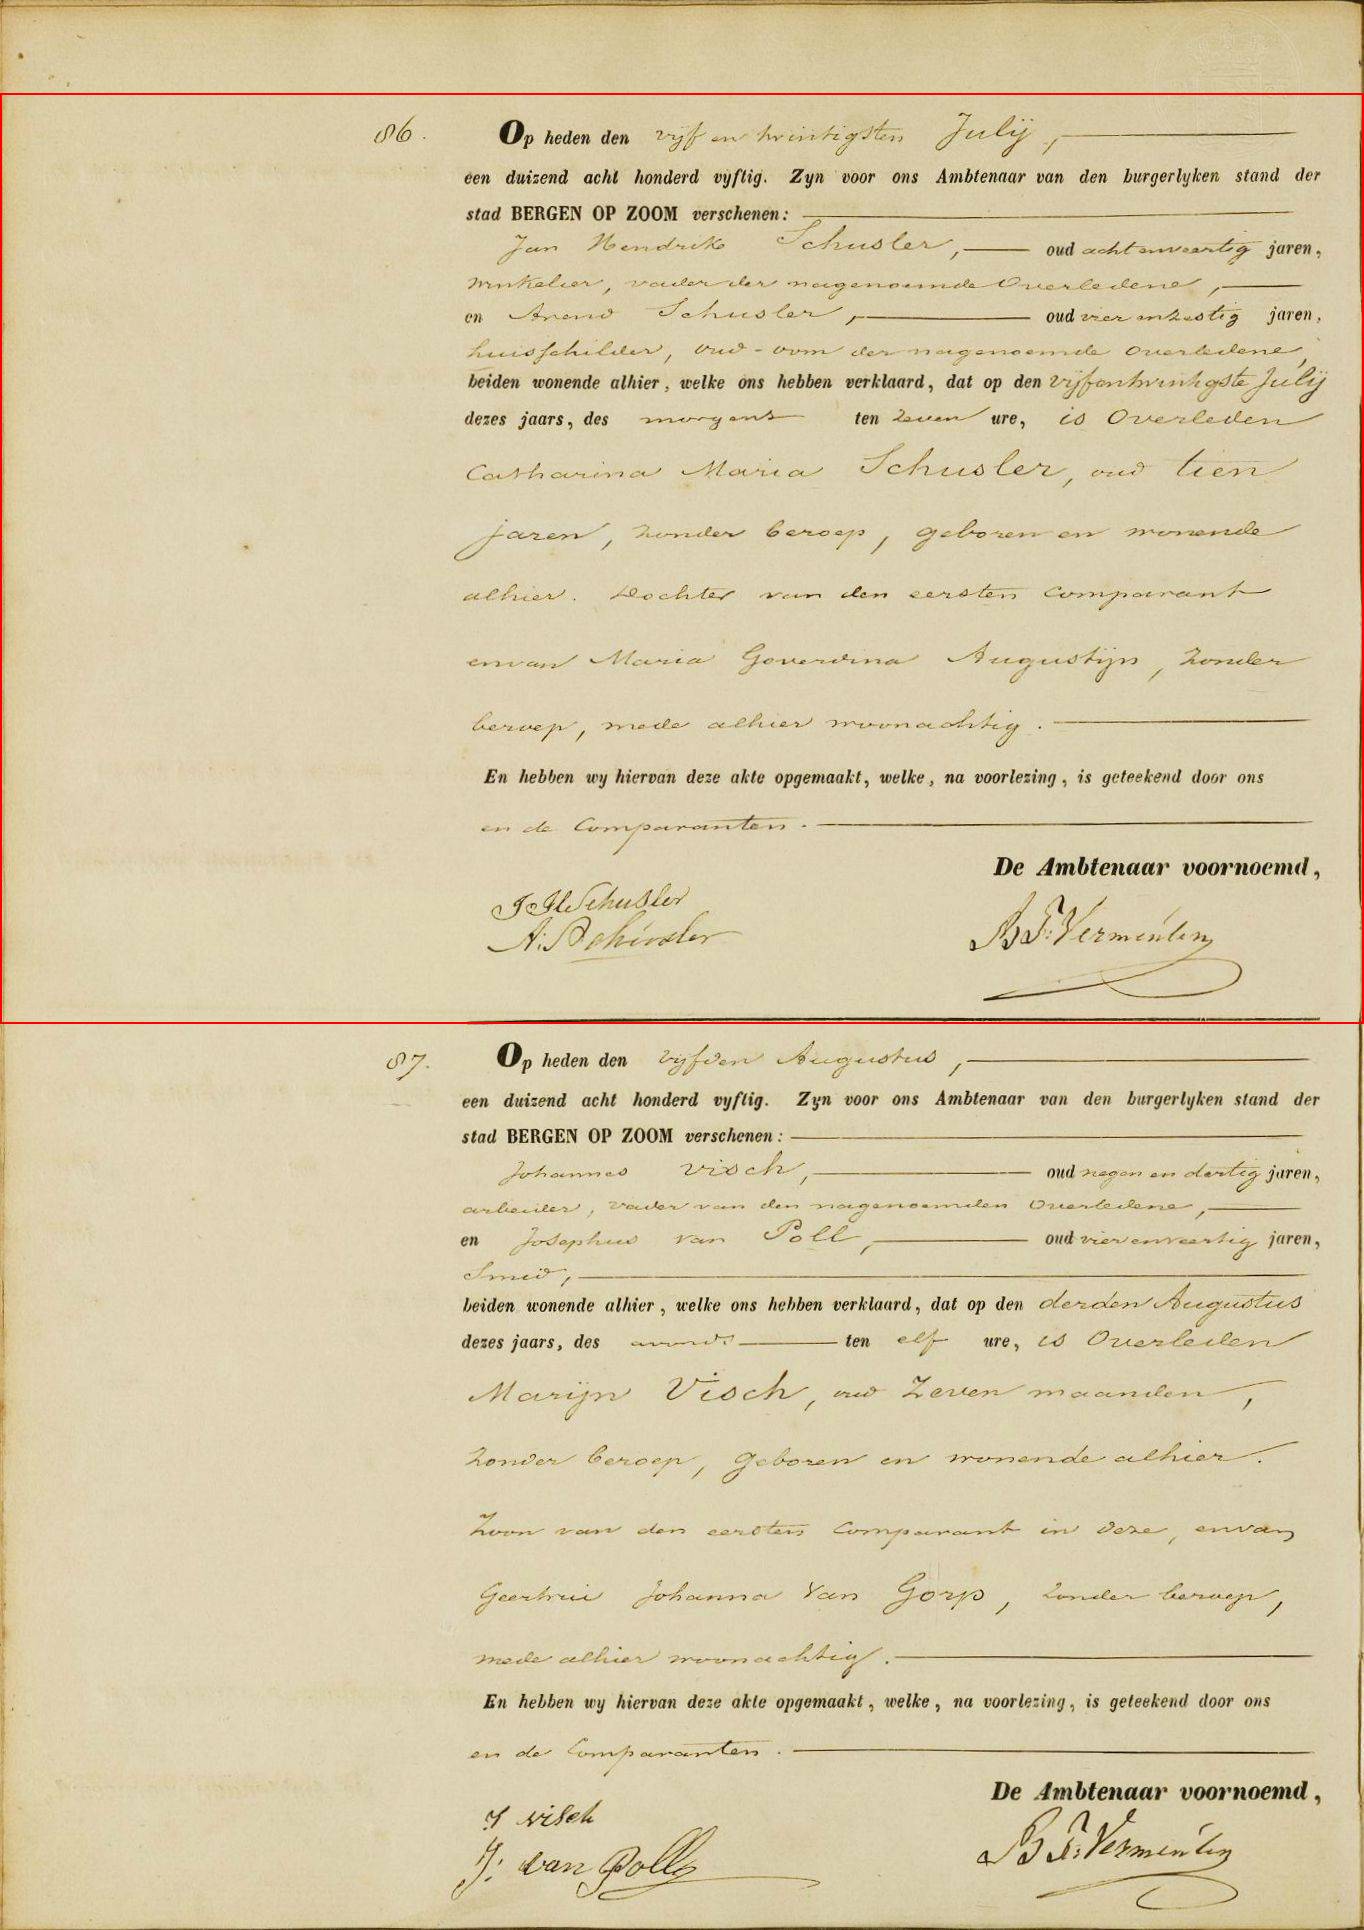 86.
Op heden den vijf en twintigsten Julij,
een duizend acht honderd vyftig. Zyn voor ons Ambtenaar van den burgerlyken stand der
stad BERGEN OP ZOOM verschenen:
Jan Hendrik Schusler, oud acht en veertig jaren,
winkelier, vader der nagenoemde Overledene,
en Arend Schusler, oud vier en zestig jaren,
huisschilder, oud-oom der nagenoemde overledene,
beiden wonende alhier, welke ons hebben verklaard, dat op den vijfentwintigste Julij
dezes jaars, des morgens ten zeven ure, is Overleden
Catharina Maria Schusler, oud tien
jaren, zonder beroep, geboren en wonende
alhier. Dochter van den eersten Comparant
en van Maria Goverdina Augustijn, zonder
beroep, mede alhier woonachtig.
En hebben wy hiervan deze akte opgemaakt, welke, na voorlezing, is geteekend door ons
en de Comparanten.
De Ambtenaar voornoemd,
J H Schusler
A: Schusler
B F: Vermeulen
87.
Op heden den vijfden Augustus,
een duizend acht honderd vyftig. Zyn voor ons Ambtenaar van den burgerlyken stand der
stad BERGEN OP ZOOM verschenen:
Johannes Visch, oud negen en dertig jaren,
arbeider, vader van den nagenoemden Overledene,
en Josephus van Poll, oud vier en veertig jaren,
Smid,
beiden wonende alhier, welke ons hebben verklaard, dat op den derden Augustus
dezes jaars, des avonds ten elf ure, is Overleden
Marijn Visch, oud Zeven maanden,
zonder beroep, geboren en wonende alhier.
Zoon van den eersten Comparant in deze, en van
Geertrui Johanna Van Gorp, zonder beroep,
mede alhier woonachtig.
En hebben wy hiervan deze akte opgemaakt, welke, na voorlezing, is geteekend door ons
en de Comparanten.
De Ambtenaar voornoemd,
J visch
J: van Poll
B F: Vermeulen